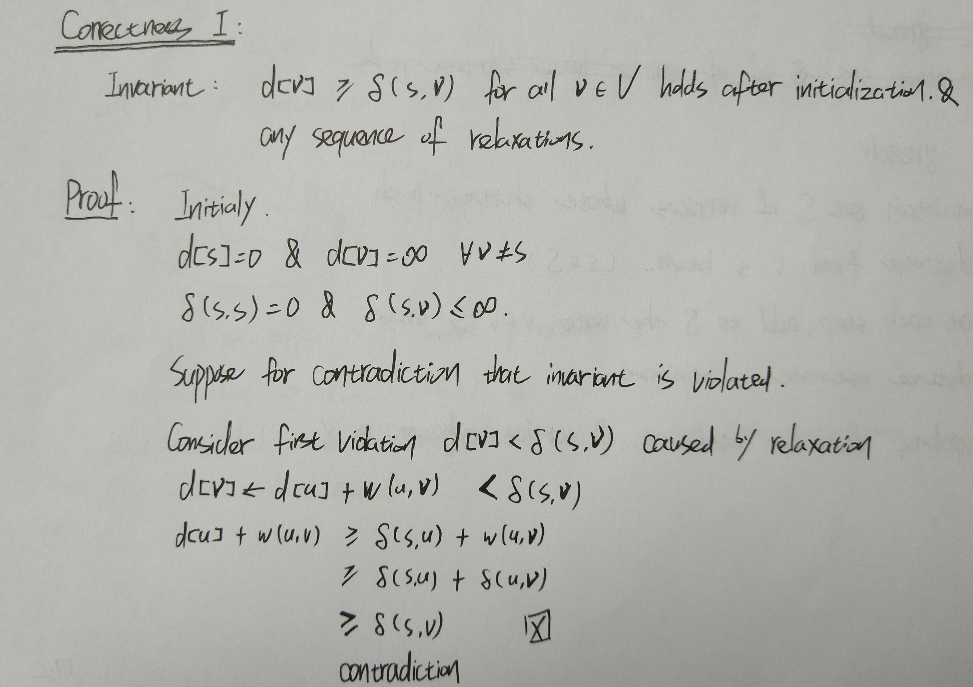 Correctness I:
Invariant: d[v] ≥ δ(s,v) for all v ∈ V holds after initialization. &
any sequence of relaxations.
Proof: Initialy.
d[s]=0 & d[v]=∞ ∀v≠s
δ(s,s)=0 & δ(s,v)≤∞.
Suppose for contradiction that invariant is violated.
Consider first violation d[v]<δ(s,v) caused by relaxation
d[v]← d[u] + w(u,v) < δ(s,v)
d[u] + w(u,v) ≥ δ(s,u) + w(u,v)
≥ δ(s,u) + δ(u,v)
≥ δ(s,v) ☒
contradiction